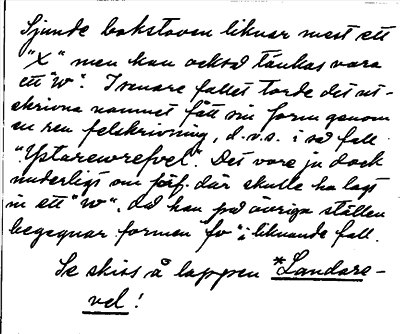 Sjunde bokstaven liknar mest ett
"X" men kan också tänkas vara
ett "W". I senare fallet torde det ut-
skrivna namnet fått sin form genom
en ren felskrivning, d.v.s. i så fall
"Ystarewrefvet". Det vore ju dock
underligt om förf. där skulle ha lagt
in ett "W", då han på övriga ställen
begagnar formen "fv" i liknande fall.
Se skiss å lappen *Landare-
vel!